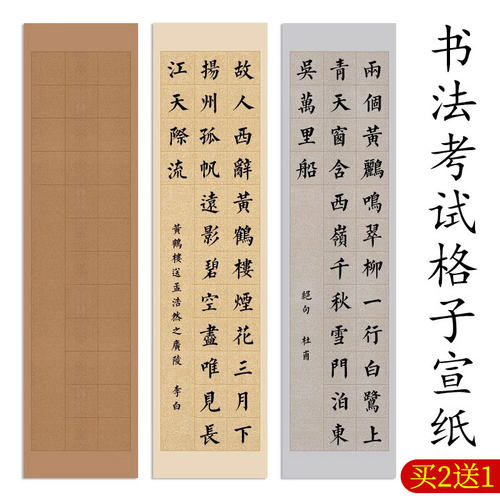 书法考试格子宣纸
兩個黃鸝鳴翠柳一行白鷺上
青天窗含西嶺千秋雪門泊東
吳萬里船
絕句 杜甫
故人西辭黃鶴樓煙花三月下
揚州孤帆遠影碧空盡唯見長
江天際流
黃鶴樓送孟浩然之廣陵 李白
买2送1